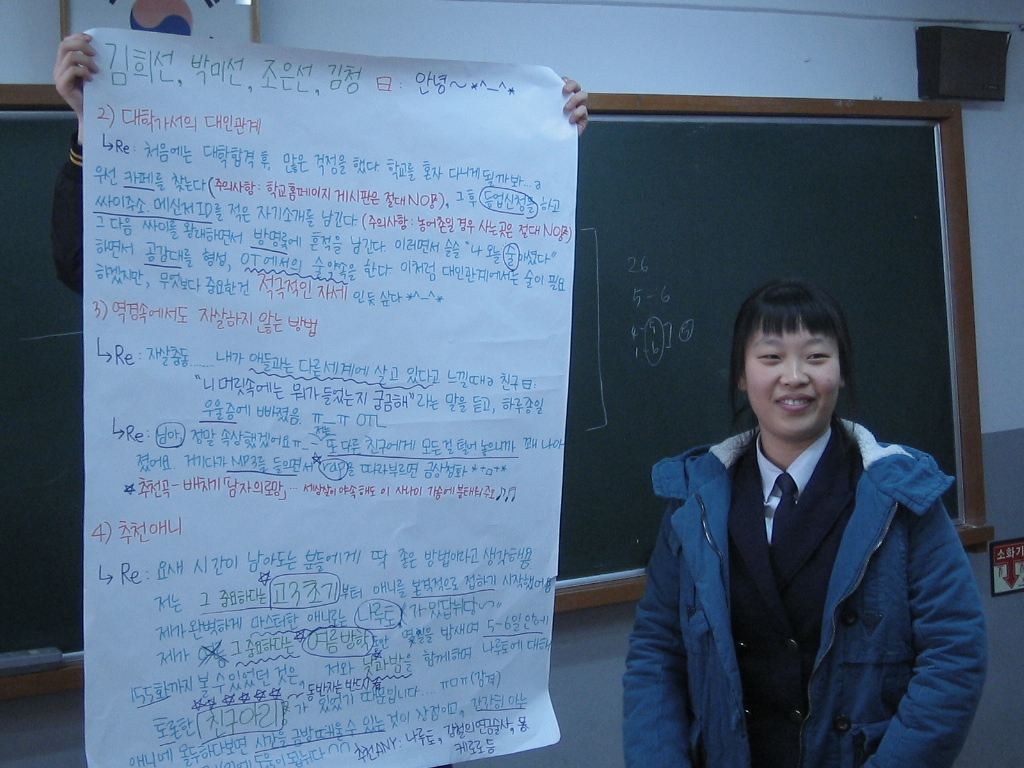 김희선, 박미선, 조은선, 김청 曰 : 안녕~ *^_^*
2) 대학가서의 대인관계
↳Re : 처음에는 대학합격 후, 많은 걱정을 했다. 학교를 혼자 다니게 될까봐...
우선 카페를 찾는다 (주의사항 : 학교홈페이지 게시판은 절대 NO!), 그 후 등업신청을 하고
싸이주소, 메신저 ID를 적은 자기소개를 남긴다 (주의사항 : 농어촌일 경우 사는곳은 절대 NO!)
그 다음 싸이를 활래하면서 방명록에 흔적을 남긴다. 이러면서 슬슬 "나 오늘 술 마셨다"
하면서 공감대를 형성, OT에서의 술약속을 한다. 이처럼 대인관계에서는 술이 필요
하겠지만, 무엇보다 중요한건 적극적인 자세 인듯 싶다 *^_^*
3) 역경속에서도 자살하지 않는 방법
↳Re : 자살충동...... 내가 애들과는 다른세계에 살고 있다고 느낄때 친구曰:
"니 머릿속에는 뭐가 들었는지 궁금해" 라는 말을 듣고, 하루종일
우울증에 빠졌음. ㅠ_ㅠ OTL
↳Re : 남아 정말 속상했겠어요ㅠ_ㅠ 또 다른 친구에게 모든걸 털어 놓으니까 꽤 나아
졌어요. 거기다가 MP3를 들으면서 rap을 따라부르면 금상첨화 *^0^*
☆ 추천곡 - 배치기 「남자의로망」... 세상살이 야속해도 이 사나이 가슴에 불태워주오♪♪
4) 추천애니
↳ Re : 요새 시간이 남아도는 분들에게 딱 좋은 방법이라고 생각해용
저는 그 중요하다는 고3초기부터 애니를 본격적으로 접하기 시작했어용
제가 완벽하게 마스터한 애니로는 나루토가 있답니다~
제가 그 중요하다는 여름방학동안 몇일을 밤새며 5-6일 안에
155화까지 볼 수 있었던 것은, 저와 낮과밤을 함께하며 나루토에 대해
토론한 친구아리가 있었기 때문입니다.... ㅠㅁㅠ (감격)
~동반자는 반드시
애니에 몰두하다보면 시간을 금방 때울수 있는 것이 장점이고,
추천ANY : 나루토, 강철의연금술사, 몽
케로로 등
26
5-6
소화기